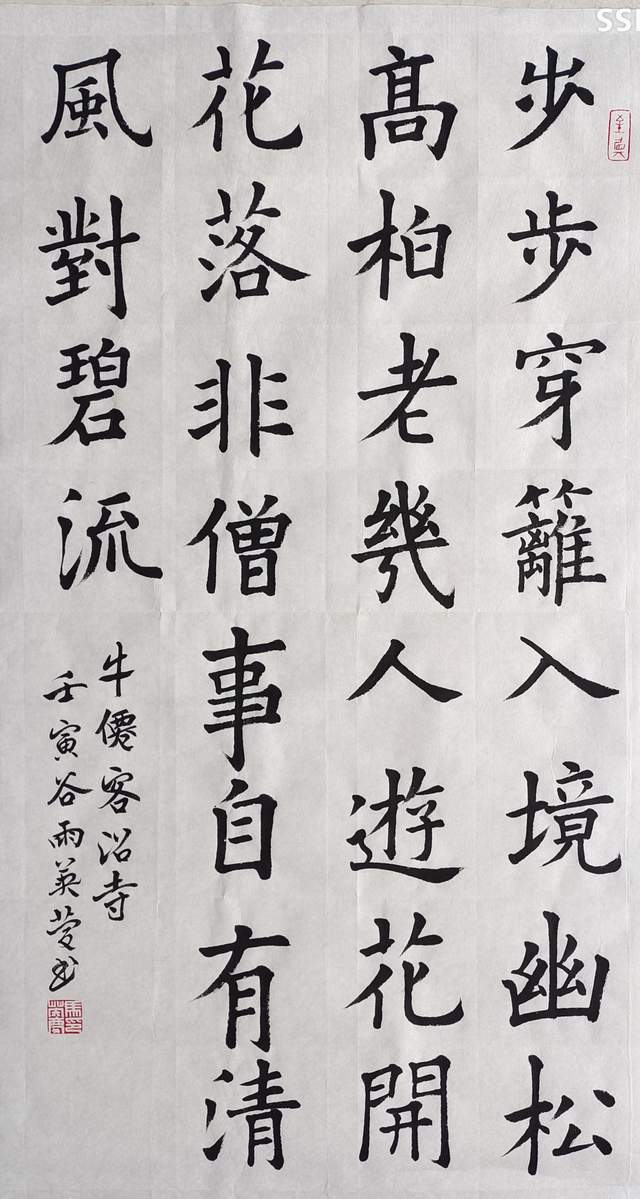 步步穿籬入境幽松
髙柏老幾人遊花開
花落非僧事自有清
風對碧流
牛僊客沿寺
壬寅谷雨英书